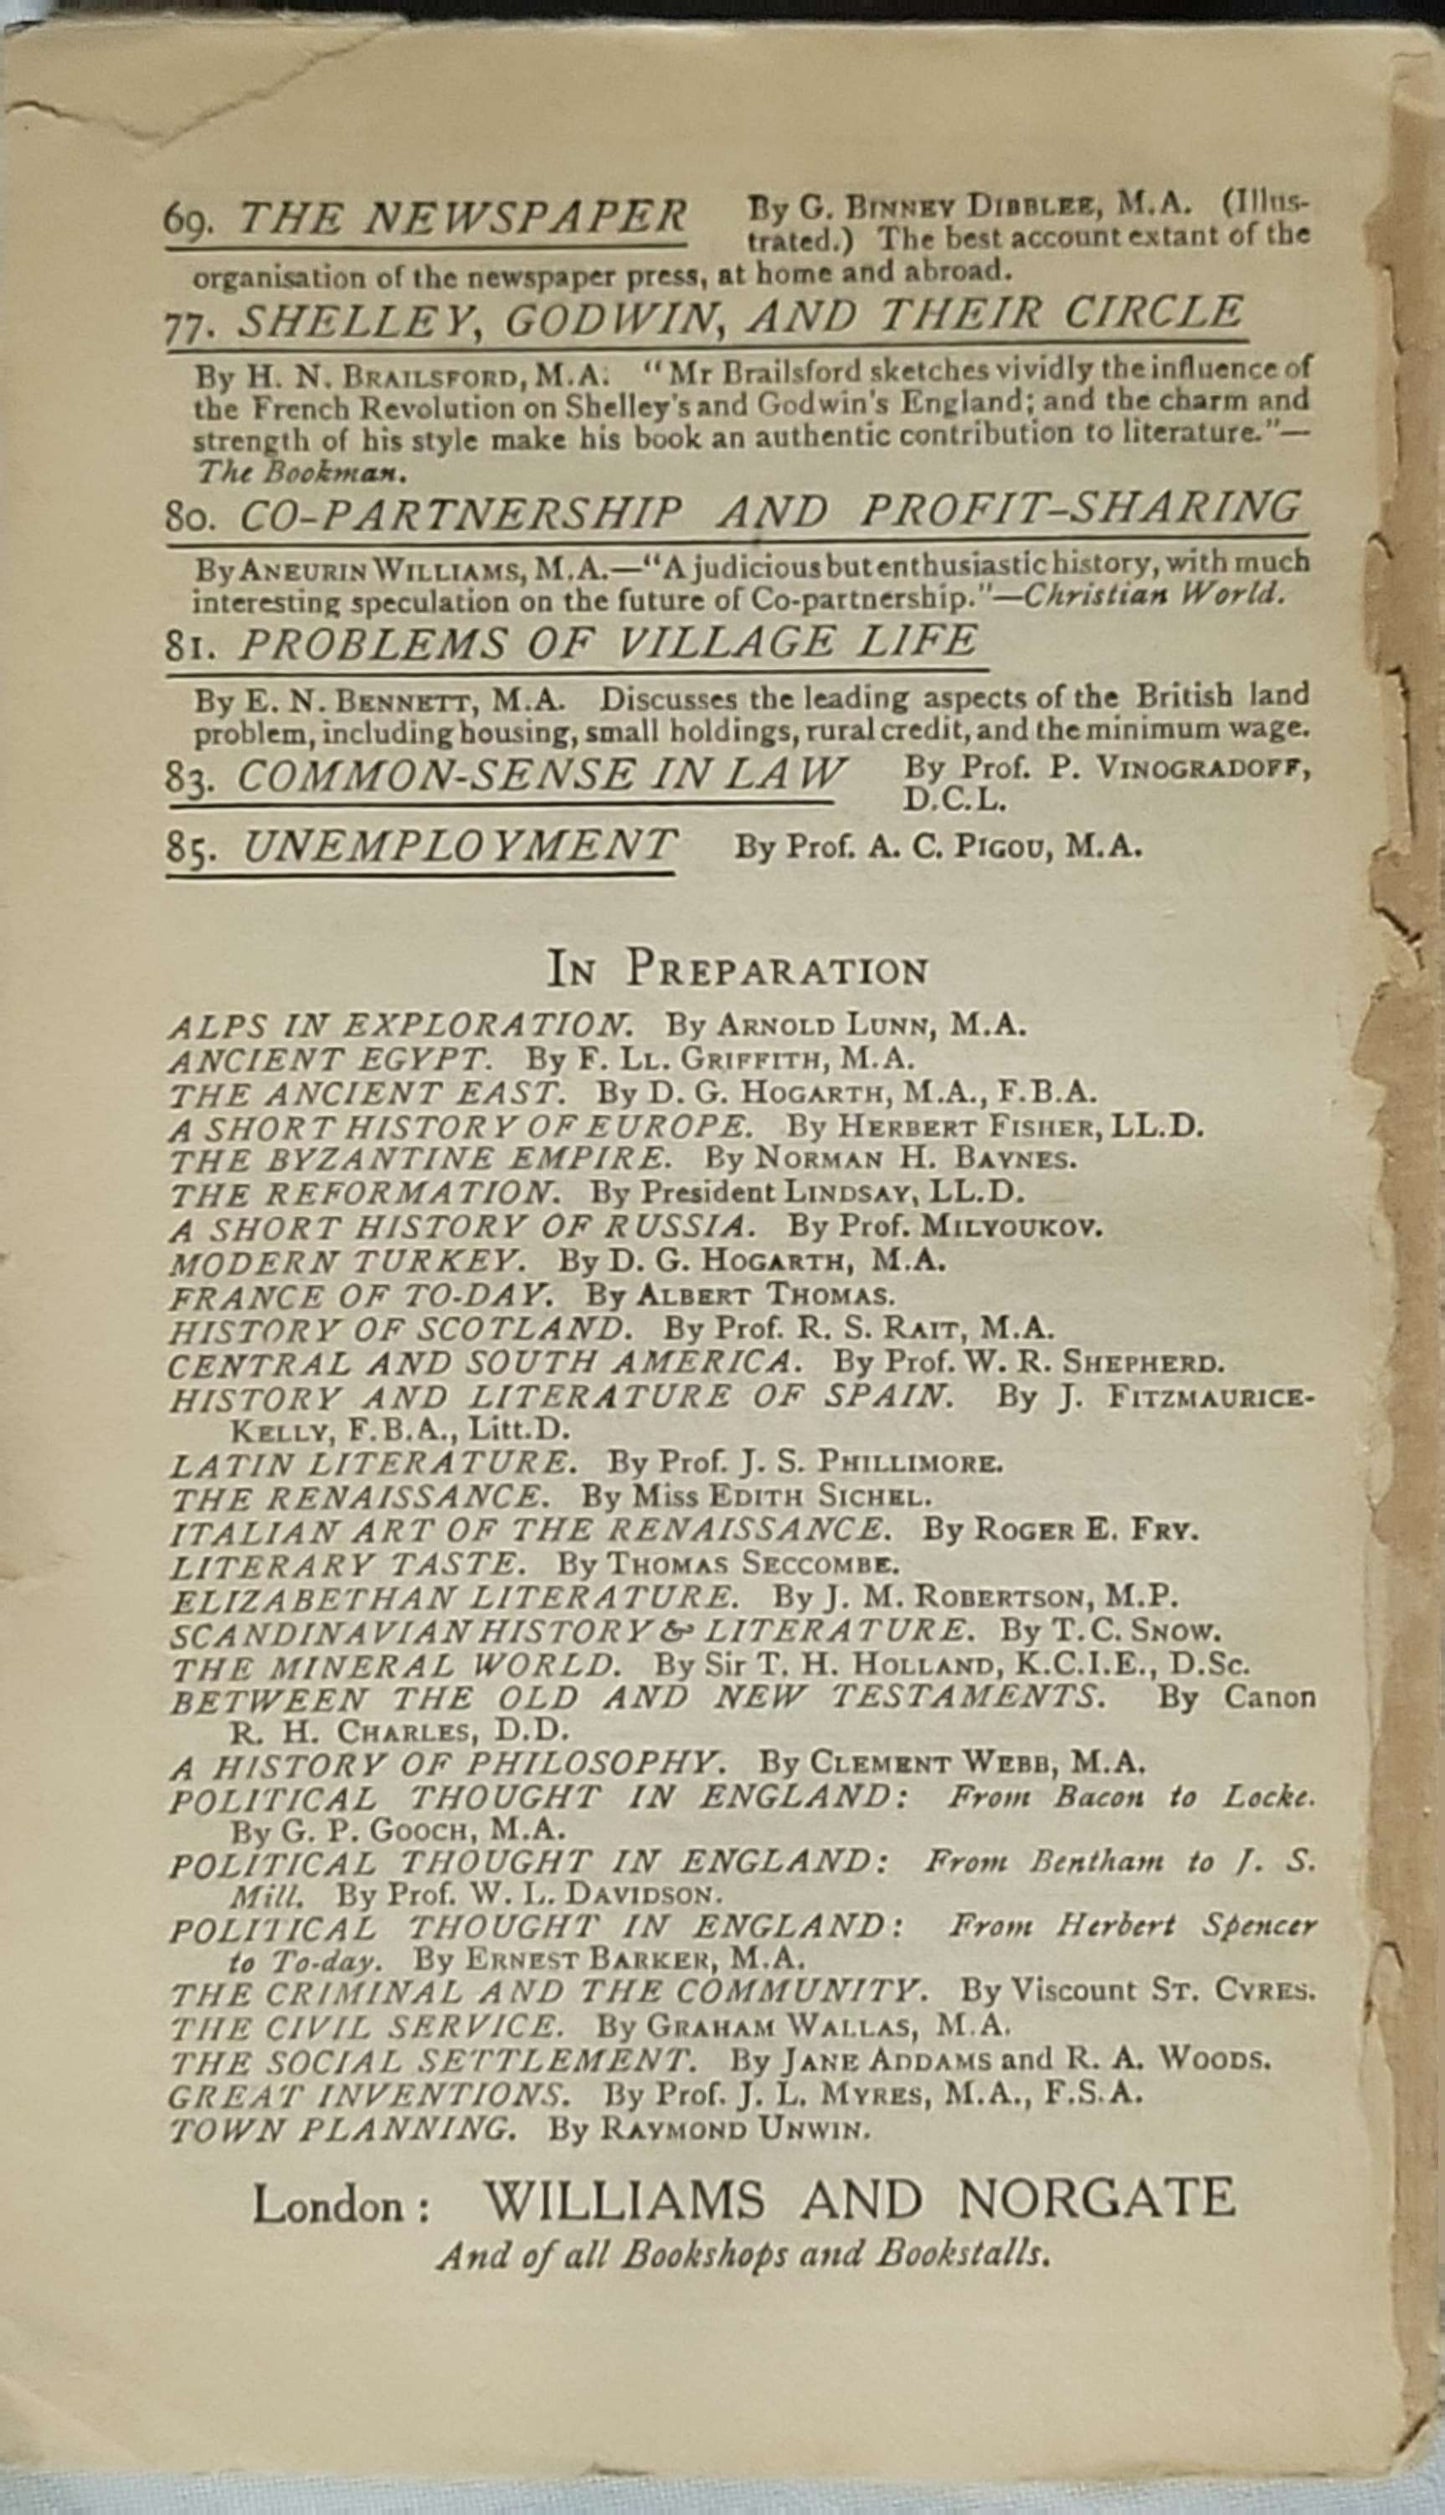 69. THE NEWSPAPER By G. BINNEY DIBBLEE, M.A. (Illus-
trated.) The best account extant of the
organisation of the newspaper press, at home and abroad.
77. SHELLEY, GODWIN, AND THEIR CIRCLE
By H. N. BRAILSFORD, M.A. "Mr Brailsford sketches vividly the influence of
the French Revolution on Shelley's and Godwin's England; and the charm and
strength of his style make his book an authentic contribution to literature."—
The Bookman.
80. CO-PARTNERSHIP AND PROFIT-SHARING
By ANEURIN WILLIAMS, M.A.—"A judicious but enthusiastic history, with much
interesting speculation on the future of Co-partnership."—Christian World.
81. PROBLEMS OF VILLAGE LIFE
By E. N. BENNETT, M.A. Discusses the leading aspects of the British land
problem, including housing, small holdings, rural credit, and the minimum wage.
83. COMMON-SENSE IN LAW By Prof. P. VINOGRADOFF,
D.C.L.
85. UNEMPLOYMENT By Prof. A. C. PIGOU, M.A.
IN PREPARATION
ALPS IN EXPLORATION. By ARNOLD LUNN, M.A.
ANCIENT EGYPT. By F. LL. GRIFFITH, M.A.
THE ANCIENT EAST. By D. G. HOGARTH, M.A., F.B.A.
A SHORT HISTORY OF EUROPE. By HERBERT FISHER, LL.D.
THE BYZANTINE EMPIRE. By NORMAN H. BAYNES.
THE REFORMATION. By President LINDSAY, LL.D.
A SHORT HISTORY OF RUSSIA. By Prof. MILYOUKOV.
MODERN TURKEY. By D. G. HOGARTH, M.A.
FRANCE OF TO-DAY. By ALBERT THOMAS.
HISTORY OF SCOTLAND. By Prof. R. S. RAIT, M.A.
CENTRAL AND SOUTH AMERICA. By Prof. W. R. SHEPHERD.
HISTORY AND LITERATURE OF SPAIN. By J. FITZMAURICE-
KELLY, F.B.A., Litt.D.
LATIN LITERATURE. By Prof. J. S. PHILLIMORE.
THE RENAISSANCE. By Miss EDITH SICHEL.
ITALIAN ART OF THE RENAISSANCE. By ROGER E. FRY.
LITERARY TASTE. By THOMAS SECCOMBE.
ELIZABETHAN LITERATURE. By J. M. ROBERTSON, M.P.
SCANDINAVIAN HISTORY & LITERATURE. By T. C. SNOW.
THE MINERAL WORLD. By Sir T. H. HOLLAND, K.C.I.E., D.Sc.
BETWEEN THE OLD AND NEW TESTAMENTS. By Canon
R. H. CHARLES, D.D.
A HISTORY OF PHILOSOPHY. By CLEMENT WEBB, M.A.
POLITICAL THOUGHT IN ENGLAND: From Bacon to Locke.
By G. P. GOOCH, M.A.
POLITICAL THOUGHT IN ENGLAND: From Bentham to J. S.
Mill. By Prof. W. L. DAVIDSON.
POLITICAL THOUGHT IN ENGLAND: From Herbert Spencer
to To-day. By ERNEST BARKER, M.A.
THE CRIMINAL AND THE COMMUNITY. By Viscount ST. CYRES.
THE CIVIL SERVICE. By GRAHAM WALLAS, M.A.
THE SOCIAL SETTLEMENT. By JANE ADDAMS and R. A. WOODS.
GREAT INVENTIONS. By Prof. J. L. MYRES, M.A., F.S.A.
TOWN PLANNING. By RAYMOND UNWIN.
London: WILLIAMS AND NORGATE
And of all Bookshops and Bookstalls.